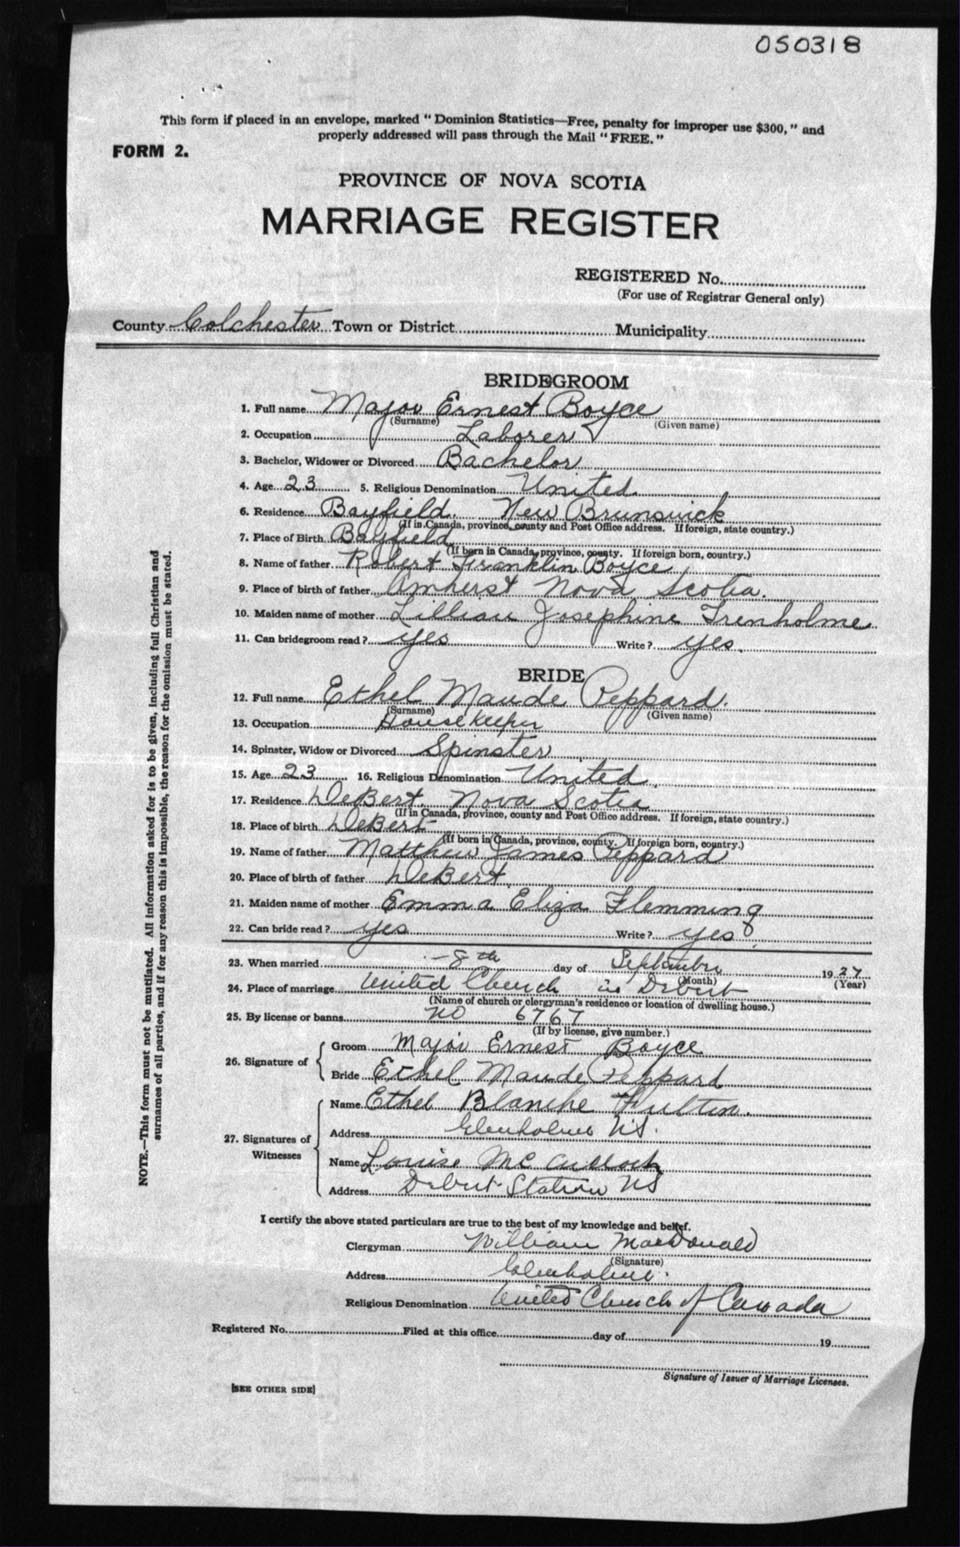 050318
This form if placed in an envelope, marked "Dominion Statistics—Free, penalty for improper use $300," and
properly addressed will pass through the Mail "FREE."
FORM 2.
PROVINCE OF NOVA SCOTIA
MARRIAGE REGISTER
REGISTERED No.
(For use of Registrar General only)
County Colchester Town or District Municipality
BRIDEGROOM
1. Full name Major Ernest Boyce
(Surname) (Given name)
2. Occupation Laborer
3. Bachelor, Widower or Divorced Bachelor
4. Age 23 5. Religious Denomination United
6. Residence Bayfield New Brunswick
(If in Canada, province, county and Post Office address. If foreign, state country.)
7. Place of Birth Bayfield
(If born in Canada, province, county. If foreign born, country.)
8. Name of father Robert Franklin Boyce
9. Place of birth of father Amherst Nova Scotia.
10. Maiden name of mother Lillian Josephine Trenholme
11. Can bridegroom read? yes Write? yes.
BRIDE
12. Full name Ethel Maude Peppard.
(Surname) (Given name)
13. Occupation Housekeeper
14. Spinster, Widow or Divorced Spinster
15. Age 23 16. Religious Denomination United.
17. Residence DeBert, Nova Scotia
(If in Canada, province, county and Post Office address. If foreign, state country.)
18. Place of birth DeBert
(If born in Canada, province, county. If foreign born, country.)
19. Name of father Matthew James Peppard
20. Place of birth of father DeBert
21. Maiden name of mother Emma Eliza Flemming
22. Can bride read? yes Write? yes.
23. When married 8th day of September 1927
(Month) (Year)
24. Place of marriage United Church in Debert
(Name of church or clergyman's residence or location of dwelling house.)
25. By license or banns no 6767
(If by license, give number.)
26. Signature of
Groom Major Ernest Boyce
Bride Ethel Maude Peppard
27. Signatures of Witnesses
Name Ethel Blanche Fulton.
Address Glenholme N.S.
Name Louise McCullock
Address Debert Station NS
I certify the above stated particulars are true to the best of my knowledge and belief.
Clergyman William MacDonald
(Signature)
Address Glenholme.
Religious Denomination United Church of Canada
Registered No. Filed at this office day of 19
Signature of Issuer of Marriage Licenses.
[SEE OTHER SIDE]
NOTE.—This form must not be mutilated. All information asked for is to be given, including full Christian and
surnames of all parties, and if for any reason this is impossible, the reason for the omission must be stated.